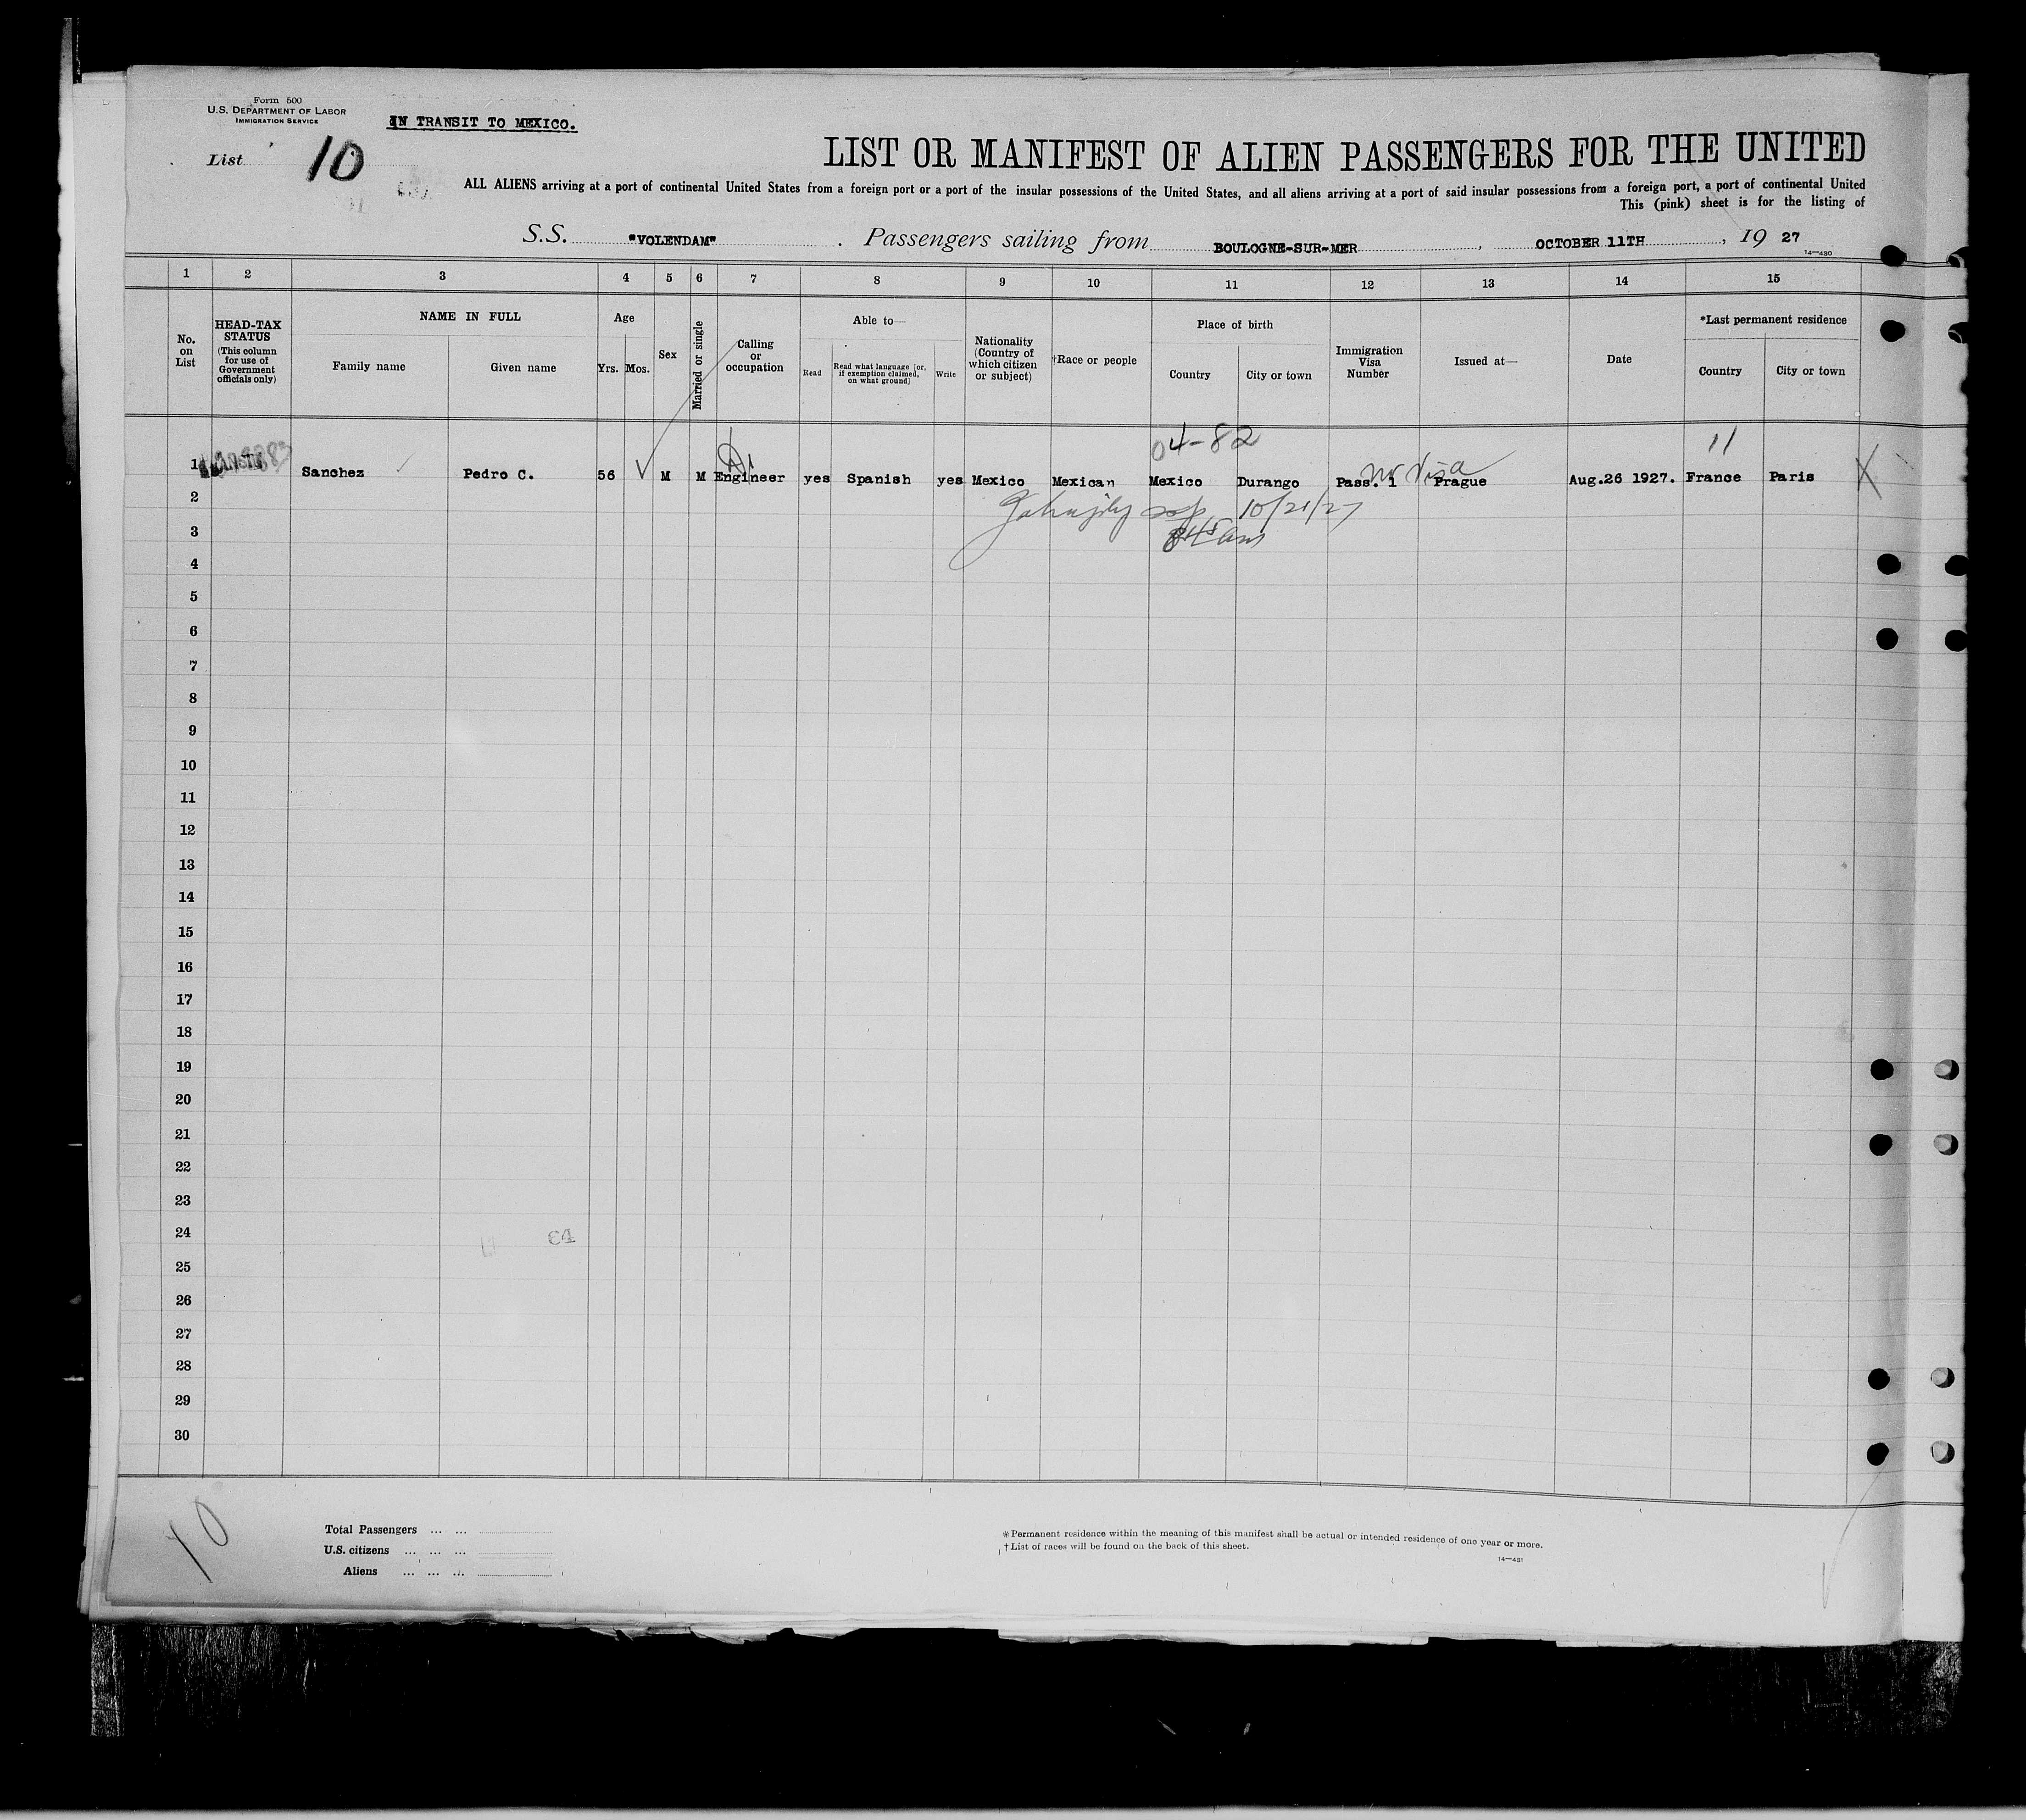 Form 500
U.S. DEPARTMENT OF LABOR
IMMIGRATION SERVICE
IN TRANSIT TO MEXICO.
List 10
LIST OR MANIFEST OF ALIEN PASSENGERS FOR THE UNITED
ALL ALIENS arriving at a port of continental United States from a foreign port or a port of the insular possessions of the United States, and all aliens arriving at a port of said insular possessions from a foreign port, a port of continental United
This (pink) sheet is for the listing of
S.S. "VOLENDAM" . Passengers sailing from BOULOGNE-SUR-MER , OCTOBER 11TH , 19 27
14—480
1 2 3 4 5 6 7 8 9 10 11 12 13 14 15
No. on List
HEAD-TAX STATUS (This column for use of Government officials only)
NAME IN FULL
Family name Given name
Age
Yrs. Mos.
Sex
Married or single
Calling or occupation
Able to—
Read Read what language [or, if exemption claimed, on what ground] Write
Nationality (Country of which citizen or subject)
†Race or people
Place of birth
Country City or town
Immigration Visa Number
Issued at—
Date
*Last permanent residence
Country City or town
04-82 11
1 Sanchez Pedro C. 56 M M Engineer yes Spanish yes Mexico Mexican Mexico Durango Pass. 1 Visa Prague Aug.26 1927. France Paris X
2 10/21/27
3
4
5
6
7
8
9
10
11
12
13
14
15
16
17
18
19
20
21
22
23
24
25
26
27
28
29
30
10
Total Passengers ... ...
U.S. citizens ... ... ...
Aliens ... ... ...
*Permanent residence within the meaning of this manifest shall be actual or intended residence of one year or more.
†List of races will be found on the back of this sheet.
14—481